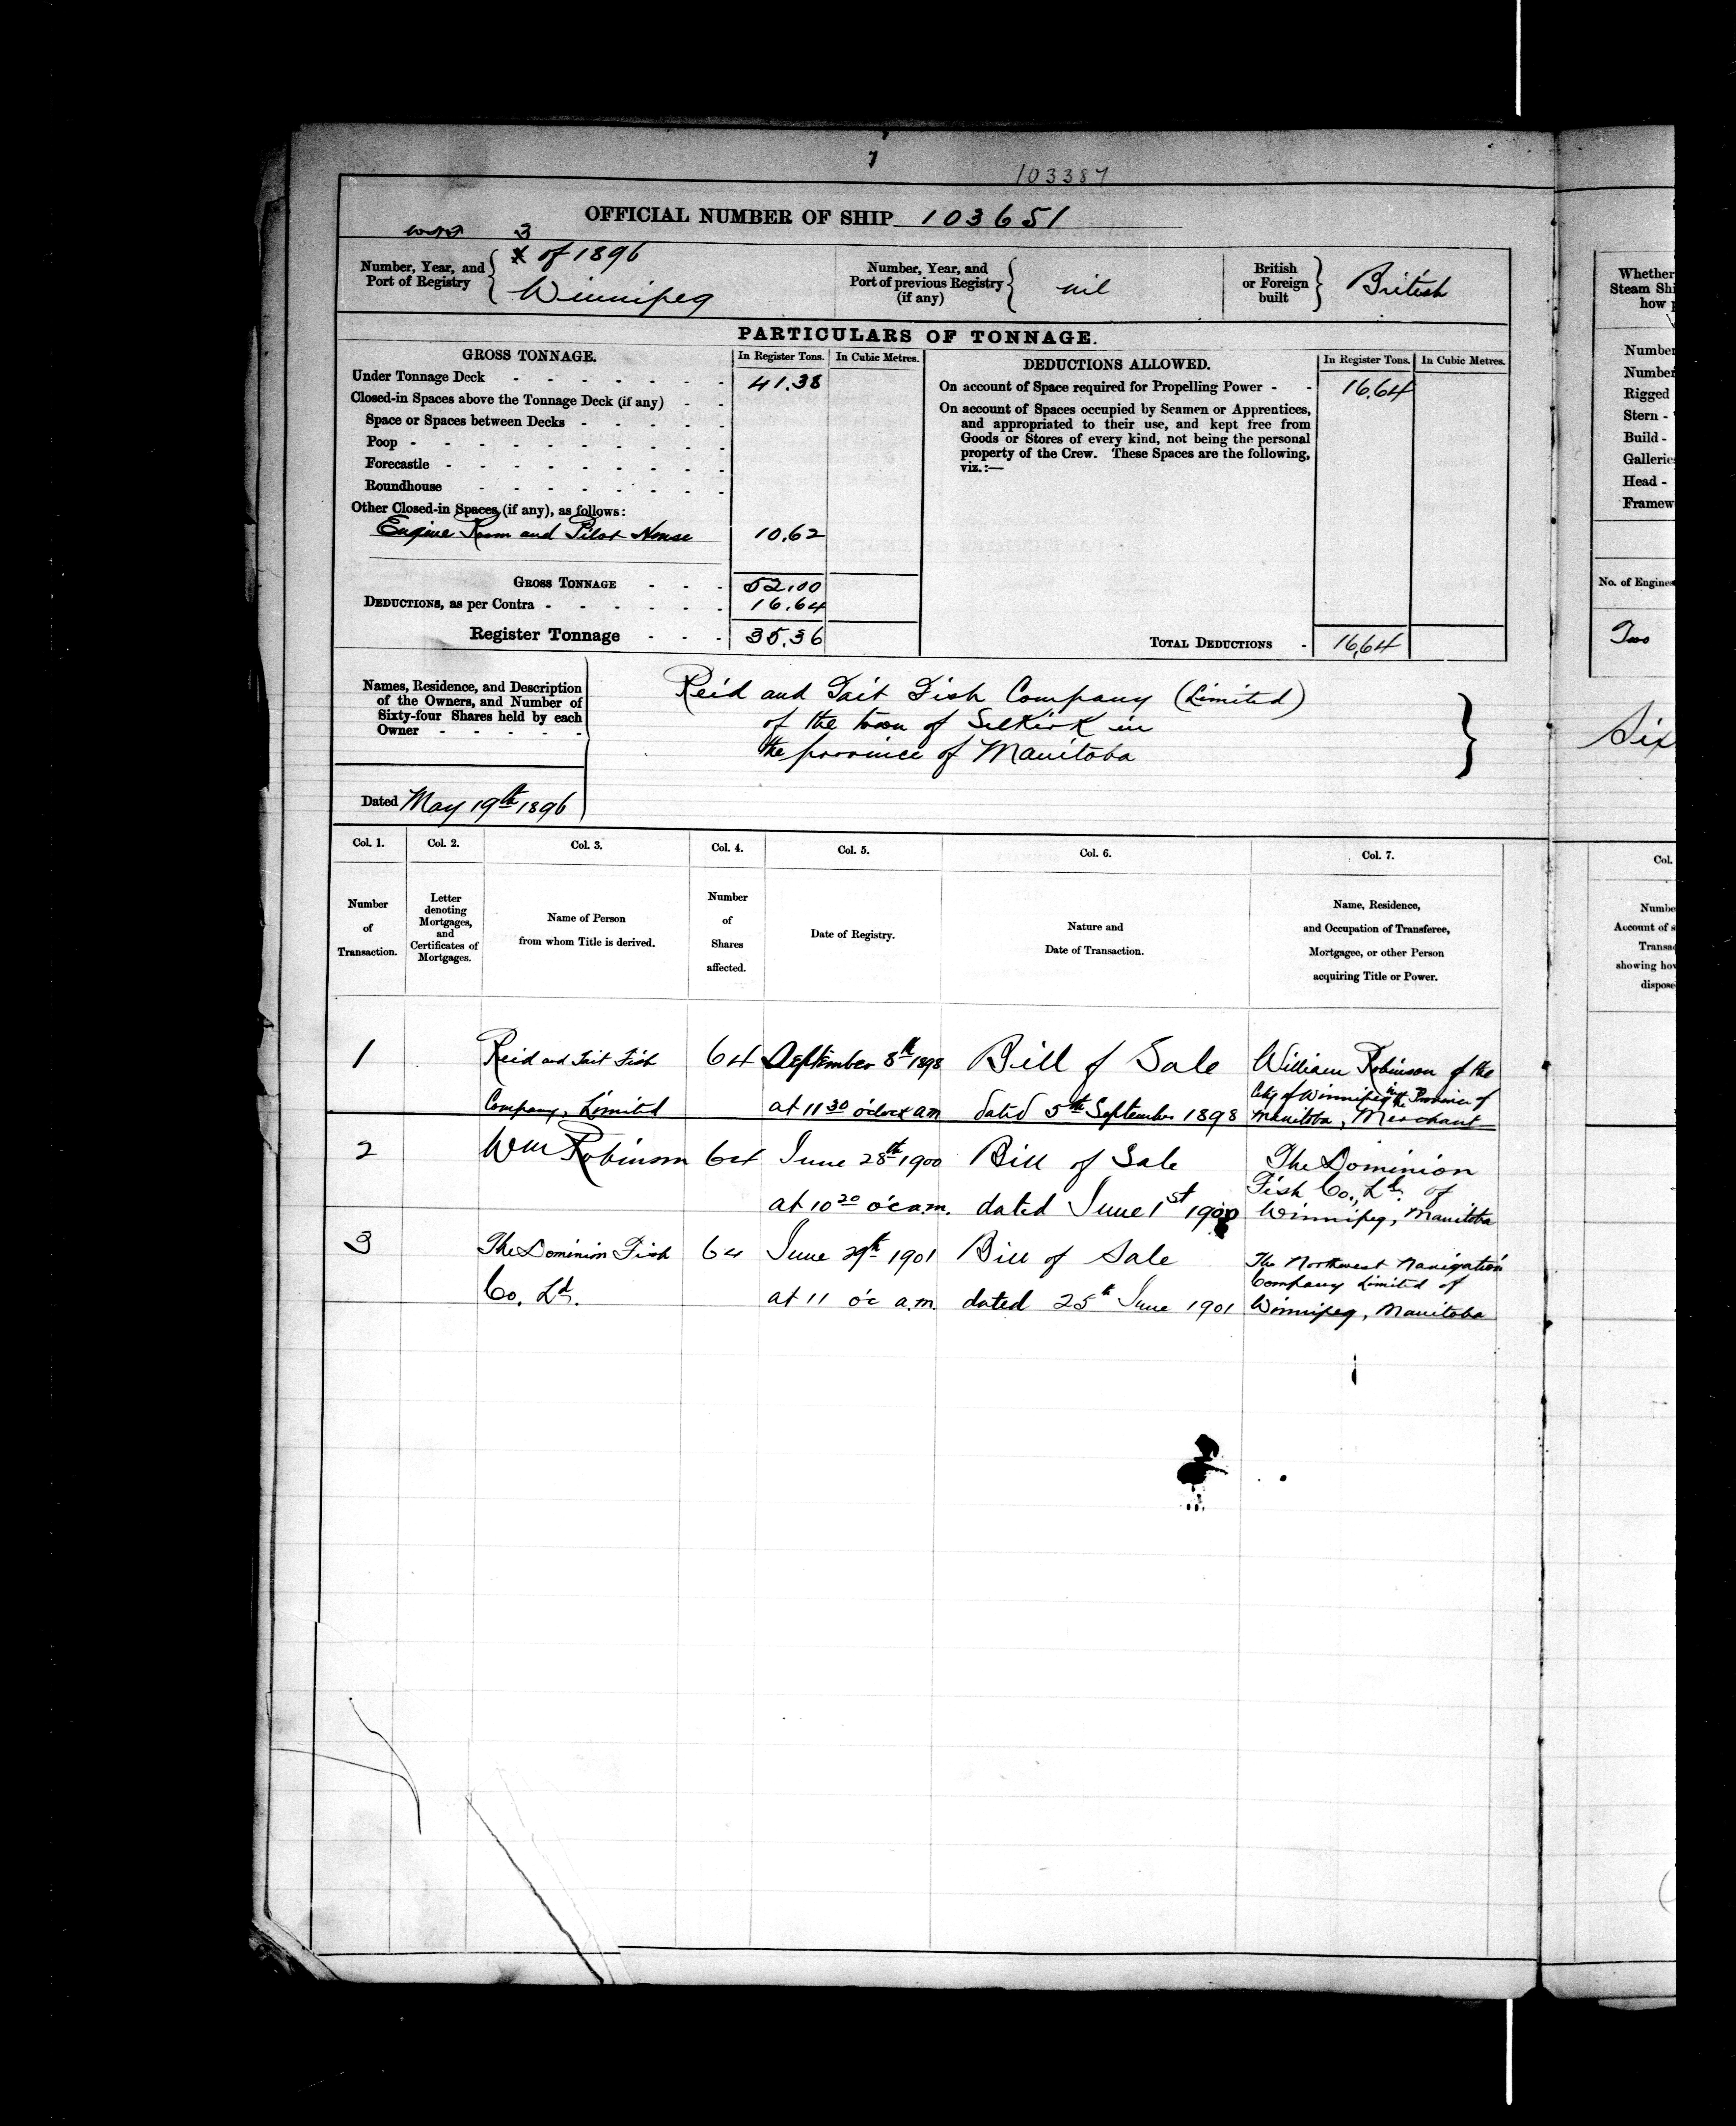 7
103387
OFFICIAL NUMBER OF SHIP 103651
3
of 1896
Number, Year, and
Port of Registry
Winnipeg
Number, Year, and
Port of previous Registry
(if any)
nil
British
or Foreign
built
British
PARTICULARS OF TONNAGE.
GROSS TONNAGE.
In Register Tons. In Cubic Metres.
Under Tonnage Deck 41.38
Closed-in Spaces above the Tonnage Deck (if any)
Space or Spaces between Decks
Poop
Forecastle
Roundhouse
Other Closed-in Spaces (if any), as follows:
Engine Room and Pilot House 10.62
GROSS TONNAGE 52.00
DEDUCTIONS, as per Contra 16.64
Register Tonnage 35.36
DEDUCTIONS ALLOWED.
In Register Tons. In Cubic Metres.
On account of Space required for Propelling Power 16.64
On account of Spaces occupied by Seamen or Apprentices,
and appropriated to their use, and kept free from
Goods or Stores of every kind, not being the personal
property of the Crew. These Spaces are the following,
viz.:—
TOTAL DEDUCTIONS 16.64
Names, Residence, and Description
of the Owners, and Number of
Sixty-four Shares held by each
Owner
Reid and Tait Fish Company (Limited)
of the town of Selkirk in
the province of Manitoba
Dated May 19th 1896
Col. 1. Col. 2. Col. 3. Col. 4. Col. 5. Col. 6. Col. 7.
Number
of
Transaction.
Letter
denoting
Mortgages,
and
Certificates of
Mortgages.
Name of Person
from whom Title is derived.
Number
of
Shares
affected.
Date of Registry.
Nature and
Date of Transaction.
Name, Residence,
and Occupation of Transferee,
Mortgagee, or other Person
acquiring Title or Power.
1
Reid and Tait Fish
Company, Limited
64
September 8th 1898
at 11 30 o'clock a.m
Bill of Sale
dated 5th September 1898
William Robinson of the
City of Winnipeg in the Province of
Manitoba, Merchant
2
Wm Robinson
64
June 28th 1900
at 10 20 o'c a.m.
Bill of Sale
dated June 1st 1900
The Dominion
Fish Co., Ld. of
Winnipeg, Manitoba
3
The Dominion Fish
Co. Ld.
64
June 29th 1901
at 11 o'c a.m.
Bill of Sale
dated 25th June 1901
The Northwest Navigation
Company Limited of
Winnipeg, Manitoba
Whether
Steam Shi
how
Number
Number
Rigged
Stern -
Build -
Galleries
Head -
Framew
No. of Engines
Two
Six
Col.
Numbe
Account of s
Transa
showing how
dispose